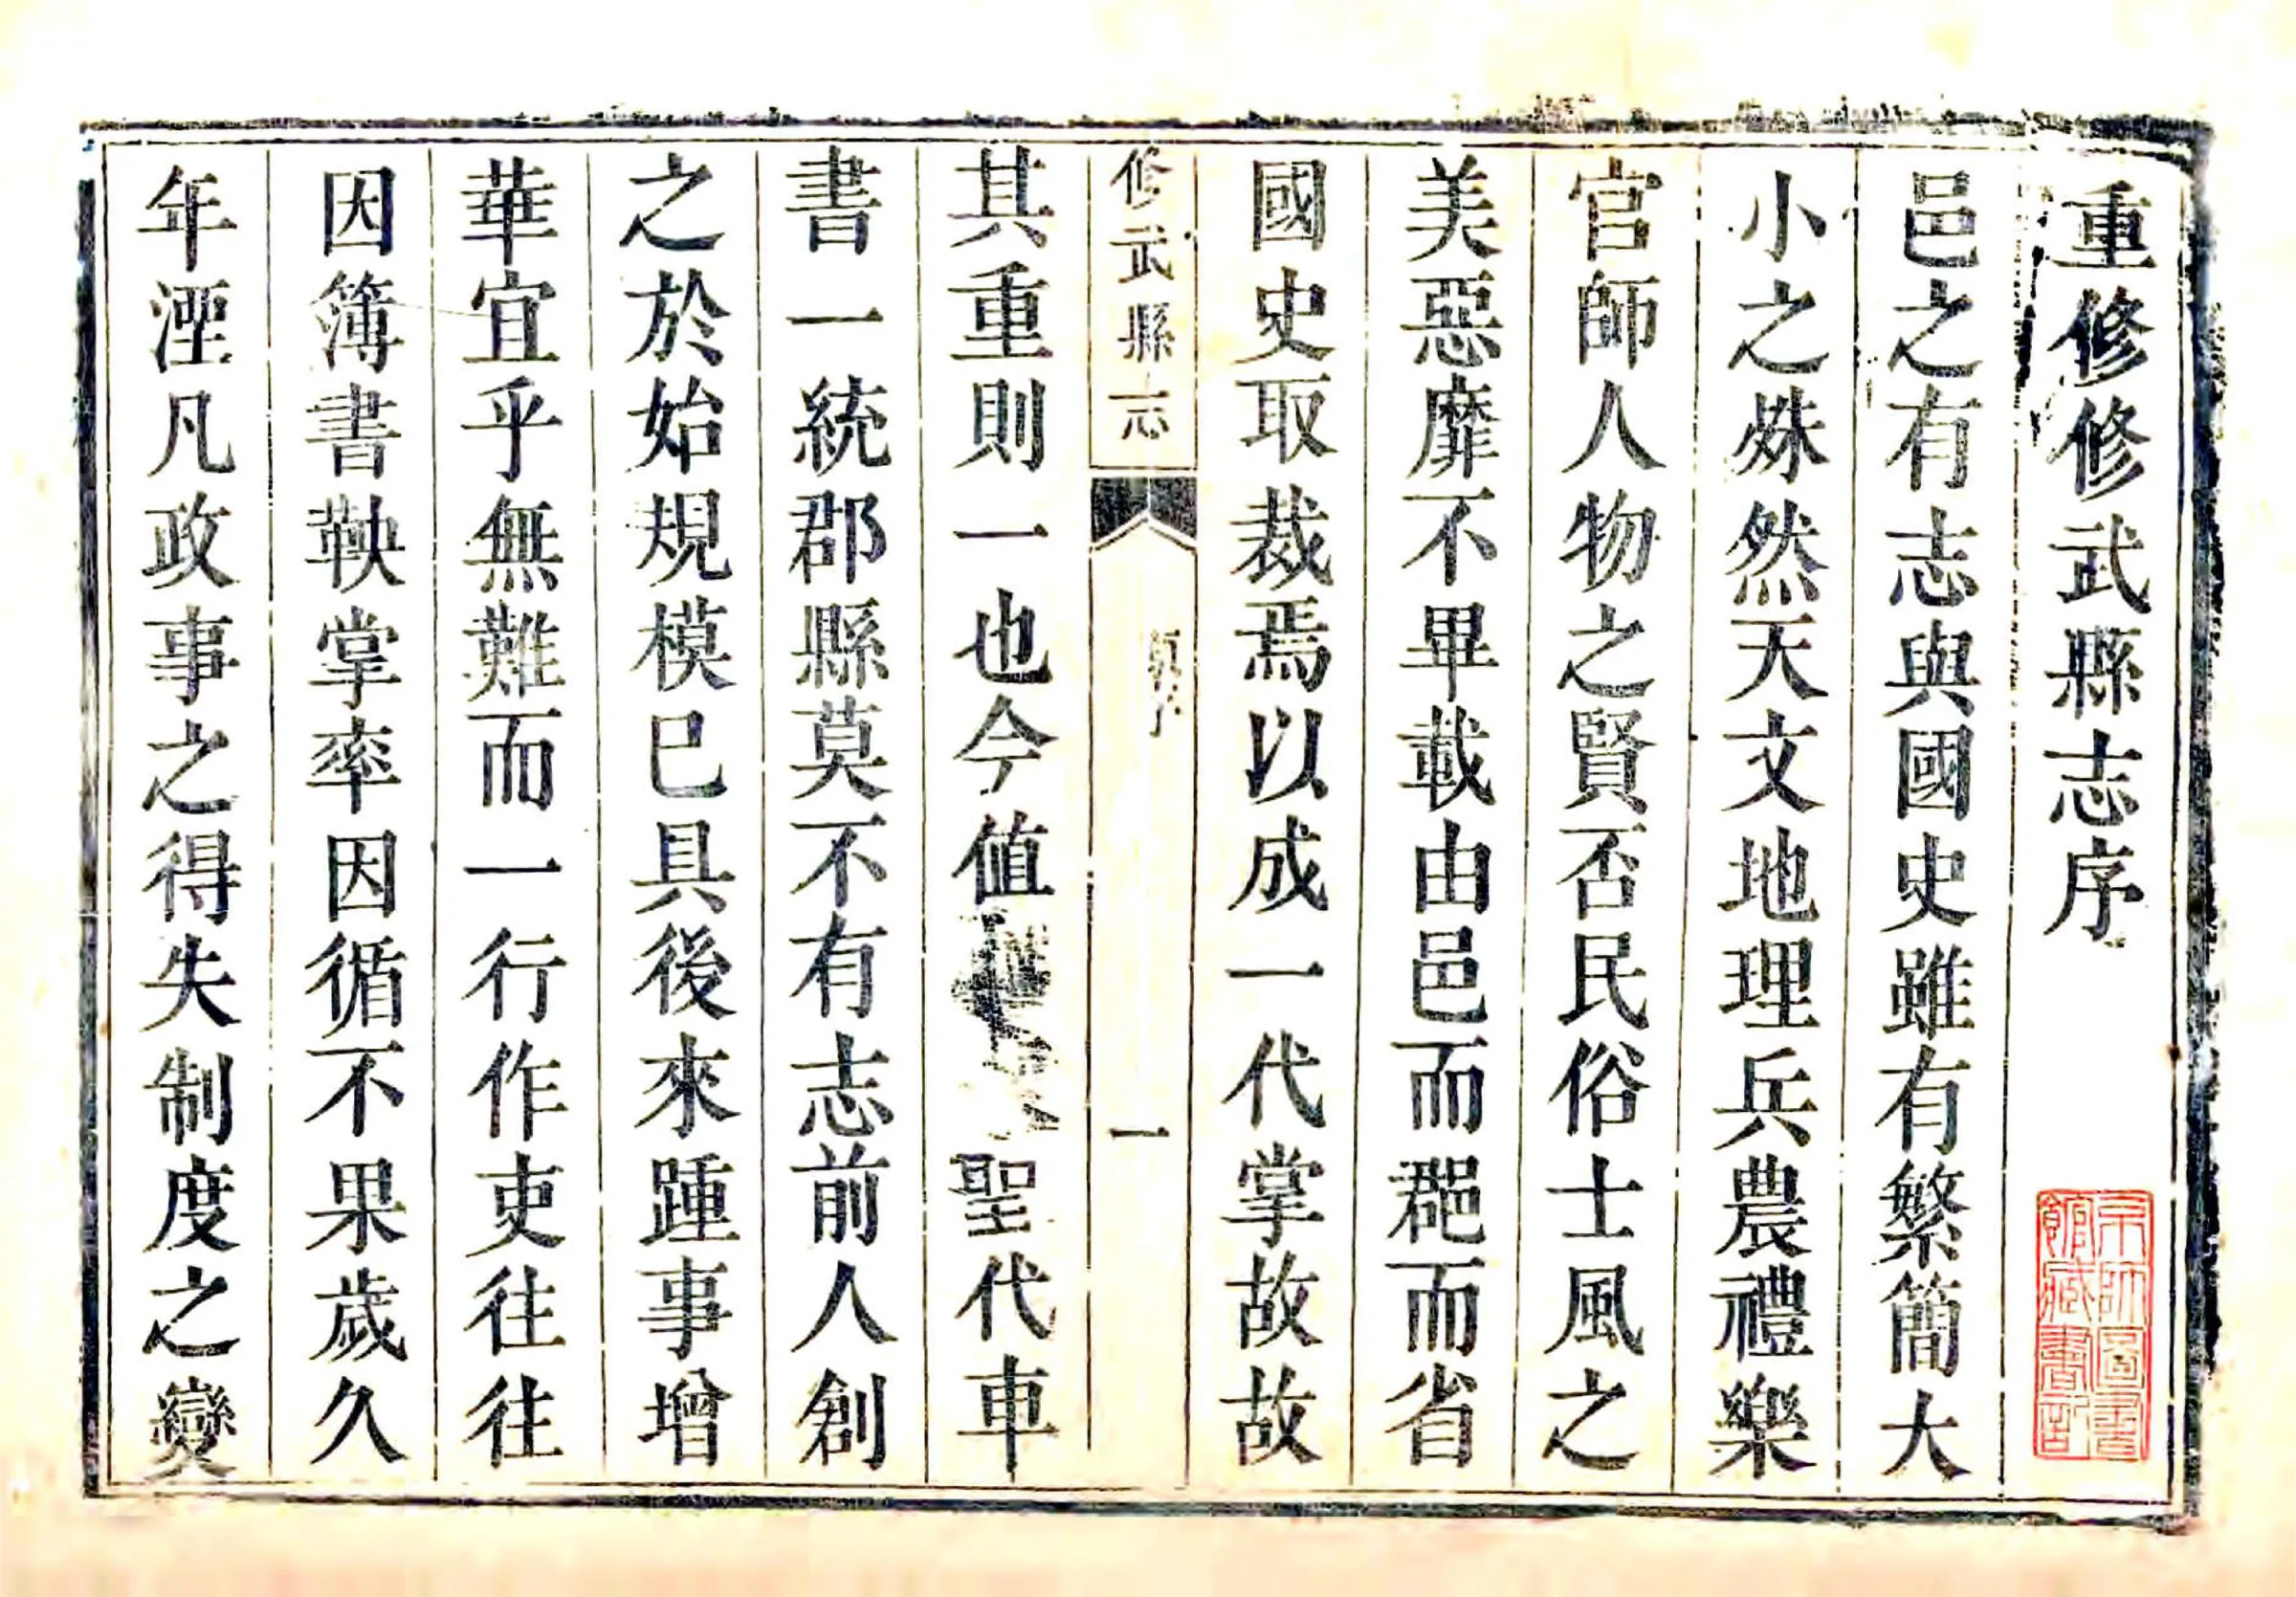 重修修武縣志序
邑之有志與國史雖有繁簡大
小之殊然天文地理兵農禮樂
官師人物之賢否民俗士風之
美惡靡不畢載由邑而郡而省
國史取裁焉以成一代掌故故
修武縣志
一
其重則一也今值
聖代車
書一統郡縣莫不有志前人創
之於始規模已具後來踵事增
華宜乎無難而一行作吏往往
因簿書鞅掌率因循不果歲久
年湮凡政事之得失制度之變